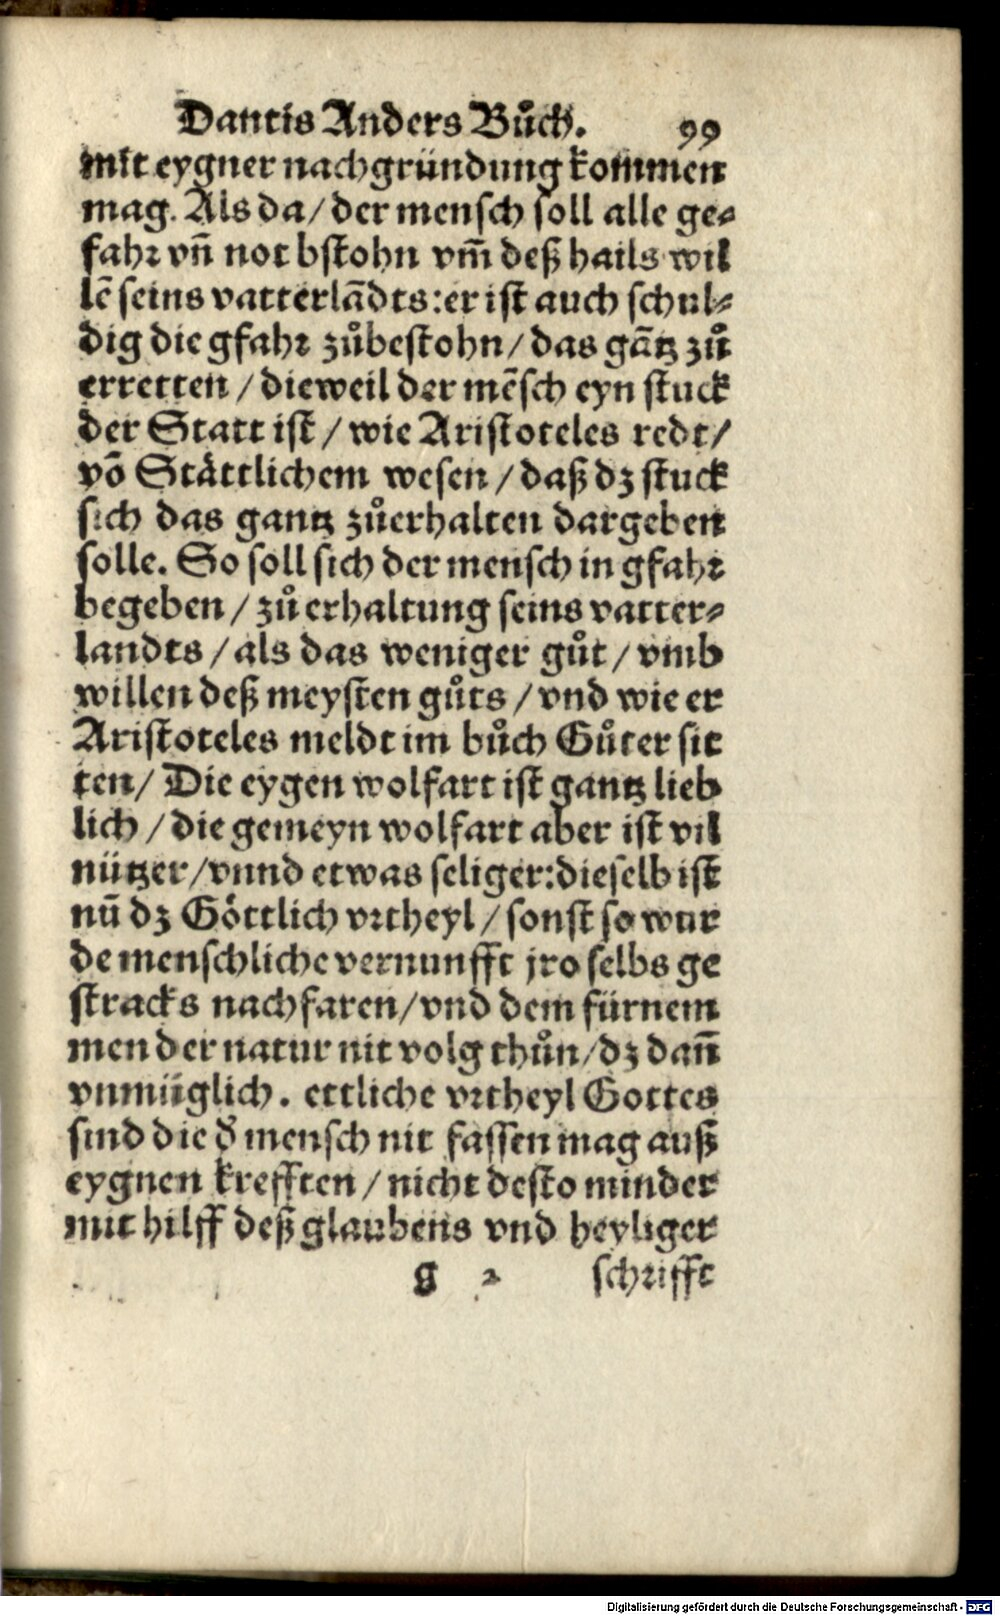 Dantis Anders Bůch. 99
mit eygner nachgründung kommen
mag. Als da / der mensch soll alle ge-
fahr vñ not bstohn vm̃ deß hails wil
lẽ seins vatterlãdts: er ist auch schul-
dig die gfahr zůbestohn / das gãtz zů
erretten / dieweil der mẽsch eyn stuck
der Statt ist / wie Aristoteles redt /
võ Stättlichem wesen / daß dz stuck
sich das gantz zůerhalten dargeben
solle. So soll sich der mensch in gfahr
begeben / zů erhaltung seins vatter-
landts / als das weniger gůt / vmb
willen deß meysten gůts / vnd wie er
Aristoteles meldt im bůch Gůter sit
ten / Die eygen wolfart ist gantz lieb
lich / die gemeyn wolfart aber ist vil
nützer / vnnd etwas seliger: dieselb ist
nũ dz Göttlich vrtheyl / sonst so wur
de menschliche vernunfft jro selbs ge
stracks nachfaren / vnd dem fürnem
men der natur nit volg thůn / dz dañ
vnmüglich. ettliche vrtheyl Gottes
sind die d̃ mensch nit fassen mag auß
eygnen krefften / nicht desto minder
mit hilff deß glaubens vnd heyliger
g 2 schrifft
Digitalisierung gefördert durch die Deutsche Forschungsgemeinschaft - DFG